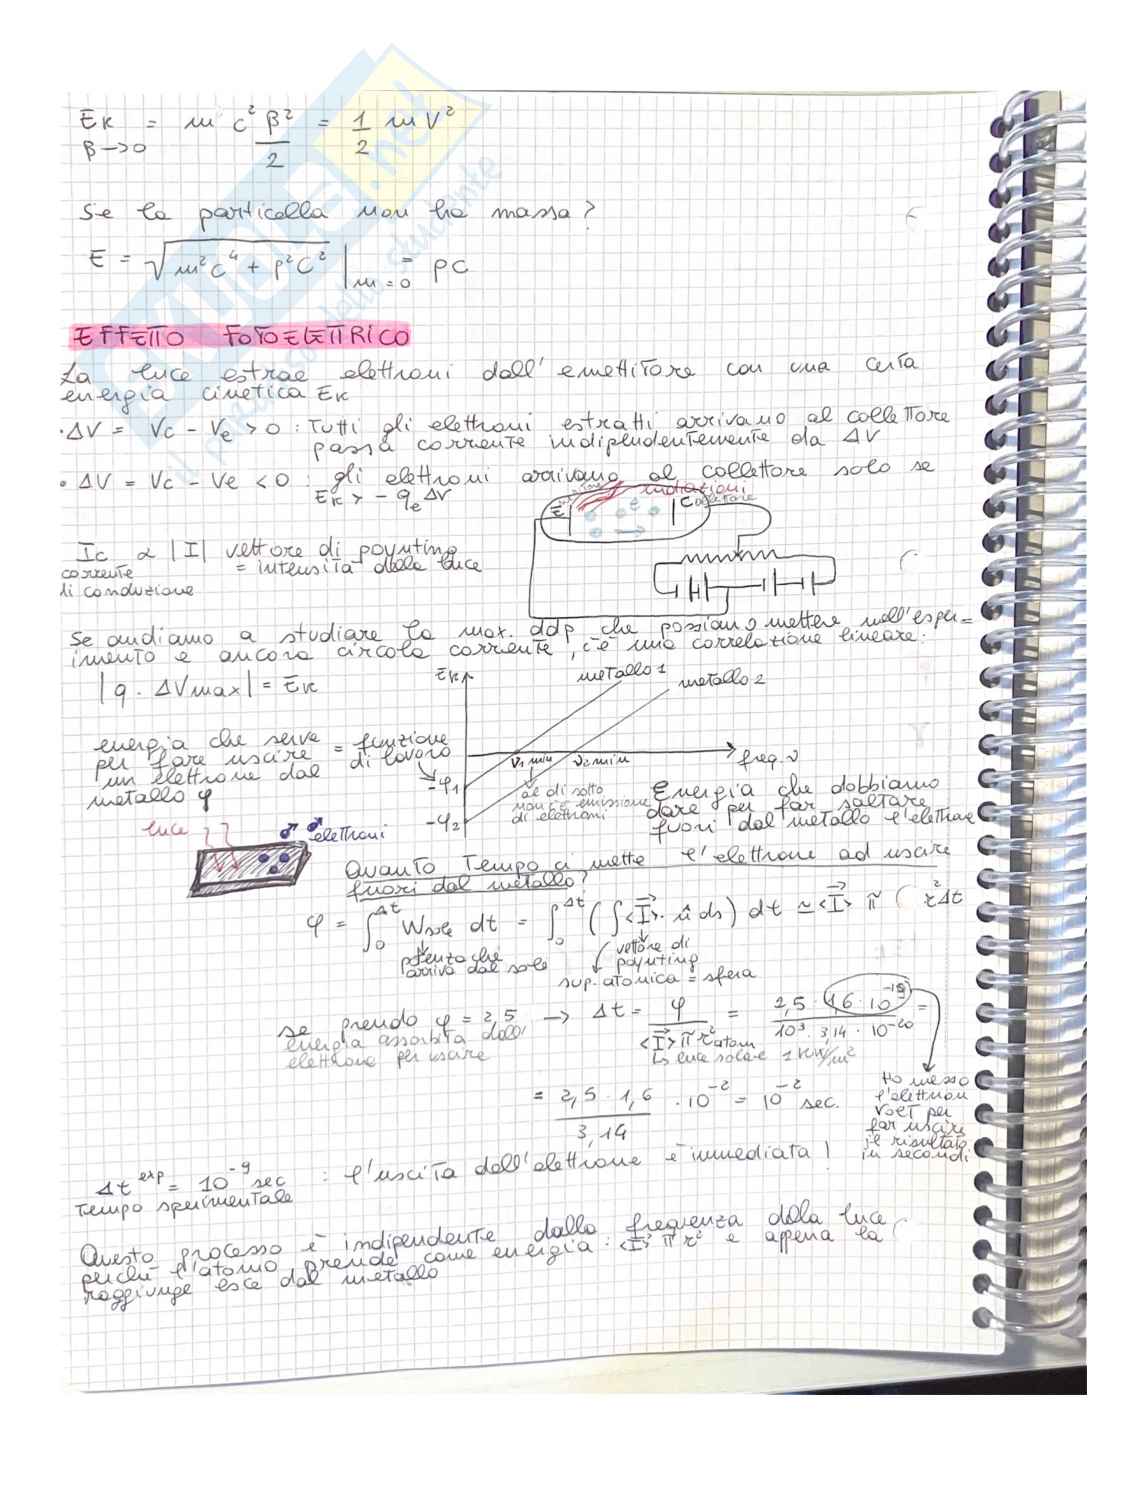 Ek = m c² β²/2 = 1/2 m v²
β→0
se la particella non ha massa?
E = √m²c⁴ + p²c² |m=0 = pc
EFFETTO FOTOELETTRICO
La luce estrae elettroni dall'emettitore con una certa
energia cinetica Ek
• ΔV = Vc - Ve > 0 : Tutti gli elettroni estratti arrivano al collettore
passa corrente indipendentemente da ΔV
• ΔV = Vc - Ve < 0 : gli elettroni arrivano al collettore solo se
Ek > - qe ΔV
radiazioni
E
e
Collettore
Ic α |I| vettore di poynting
= intensità della luce
corrente
di conduzione
se andiamo a studiare la max. ddp che possiamo mettere nell'esper=
imento e ancora circola corrente, c'è una correlazione lineare:
|q · ΔVmax| = Ek
Ek
metallo 1
metallo 2
energia che serve = funzione
per fare uscire di lavoro
un elettrone dal
metallo φ
ν1 min ν2 min
freq. ν
-φ1
-φ2
al di sotto
non c'è emissione
di elettroni
Energia che dobbiamo
dare per far saltare
fuori dal metallo l'elettrone
luce
elettroni
Quanto Tempo ci mette l'elettrone ad uscire
fuori dal metallo?
φ = ∫₀^Δt Wsole dt = ∫₀^Δt (∫<I>· û ds) dt ≃ <I> π r² Δt
potenza che
arriva dal sole
vettore di
poynting
sup. atomica = sfera
se prendo φ = 2,5 → Δt = φ/<I>πr²atom = 2,5 · 1,6 · 10⁻¹⁹/10³ · 3,14 · 10⁻²⁰ =
energia assorbita dall'
elettrone per uscire
↳ luce solare 1 kW/m²
= 2,5 · 1,6/3,14 · 10⁻² = 10⁻² sec.
Ho messo
l'elettron
Volt per
far uscire
il risultato
in secondi
Δt exp = 10⁻⁹ sec : l'uscita dell'elettrone è immediata!
Tempo sperimentale
Questo processo è indipendente dalla frequenza della luce
perchè l'atomo prende come energia : <I> π r² e appena la
raggiunge esce dal metallo